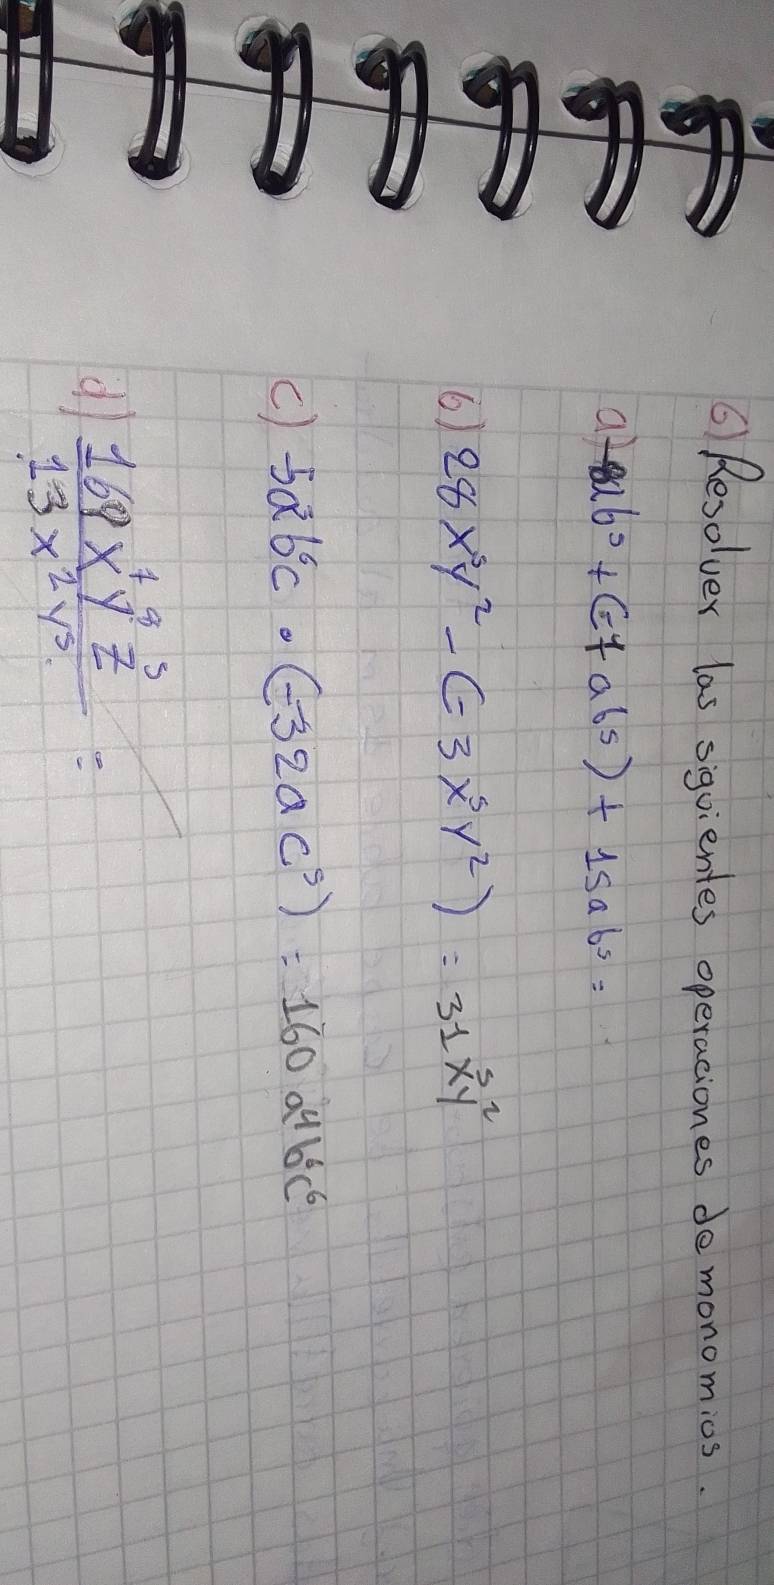 6) Resolver las siguientes operaciones de monomios.
a) -8ab⁵ + (-7ab⁵) + 15ab⁵ =
b) 28x⁵y² - (-3x⁵y²) = 31x⁵y²
c) -5a³b⁶c · (-32ac⁵) = 160a⁴b⁶c⁶
d) 169x⁷y⁸z⁵ =
13x²y⁵